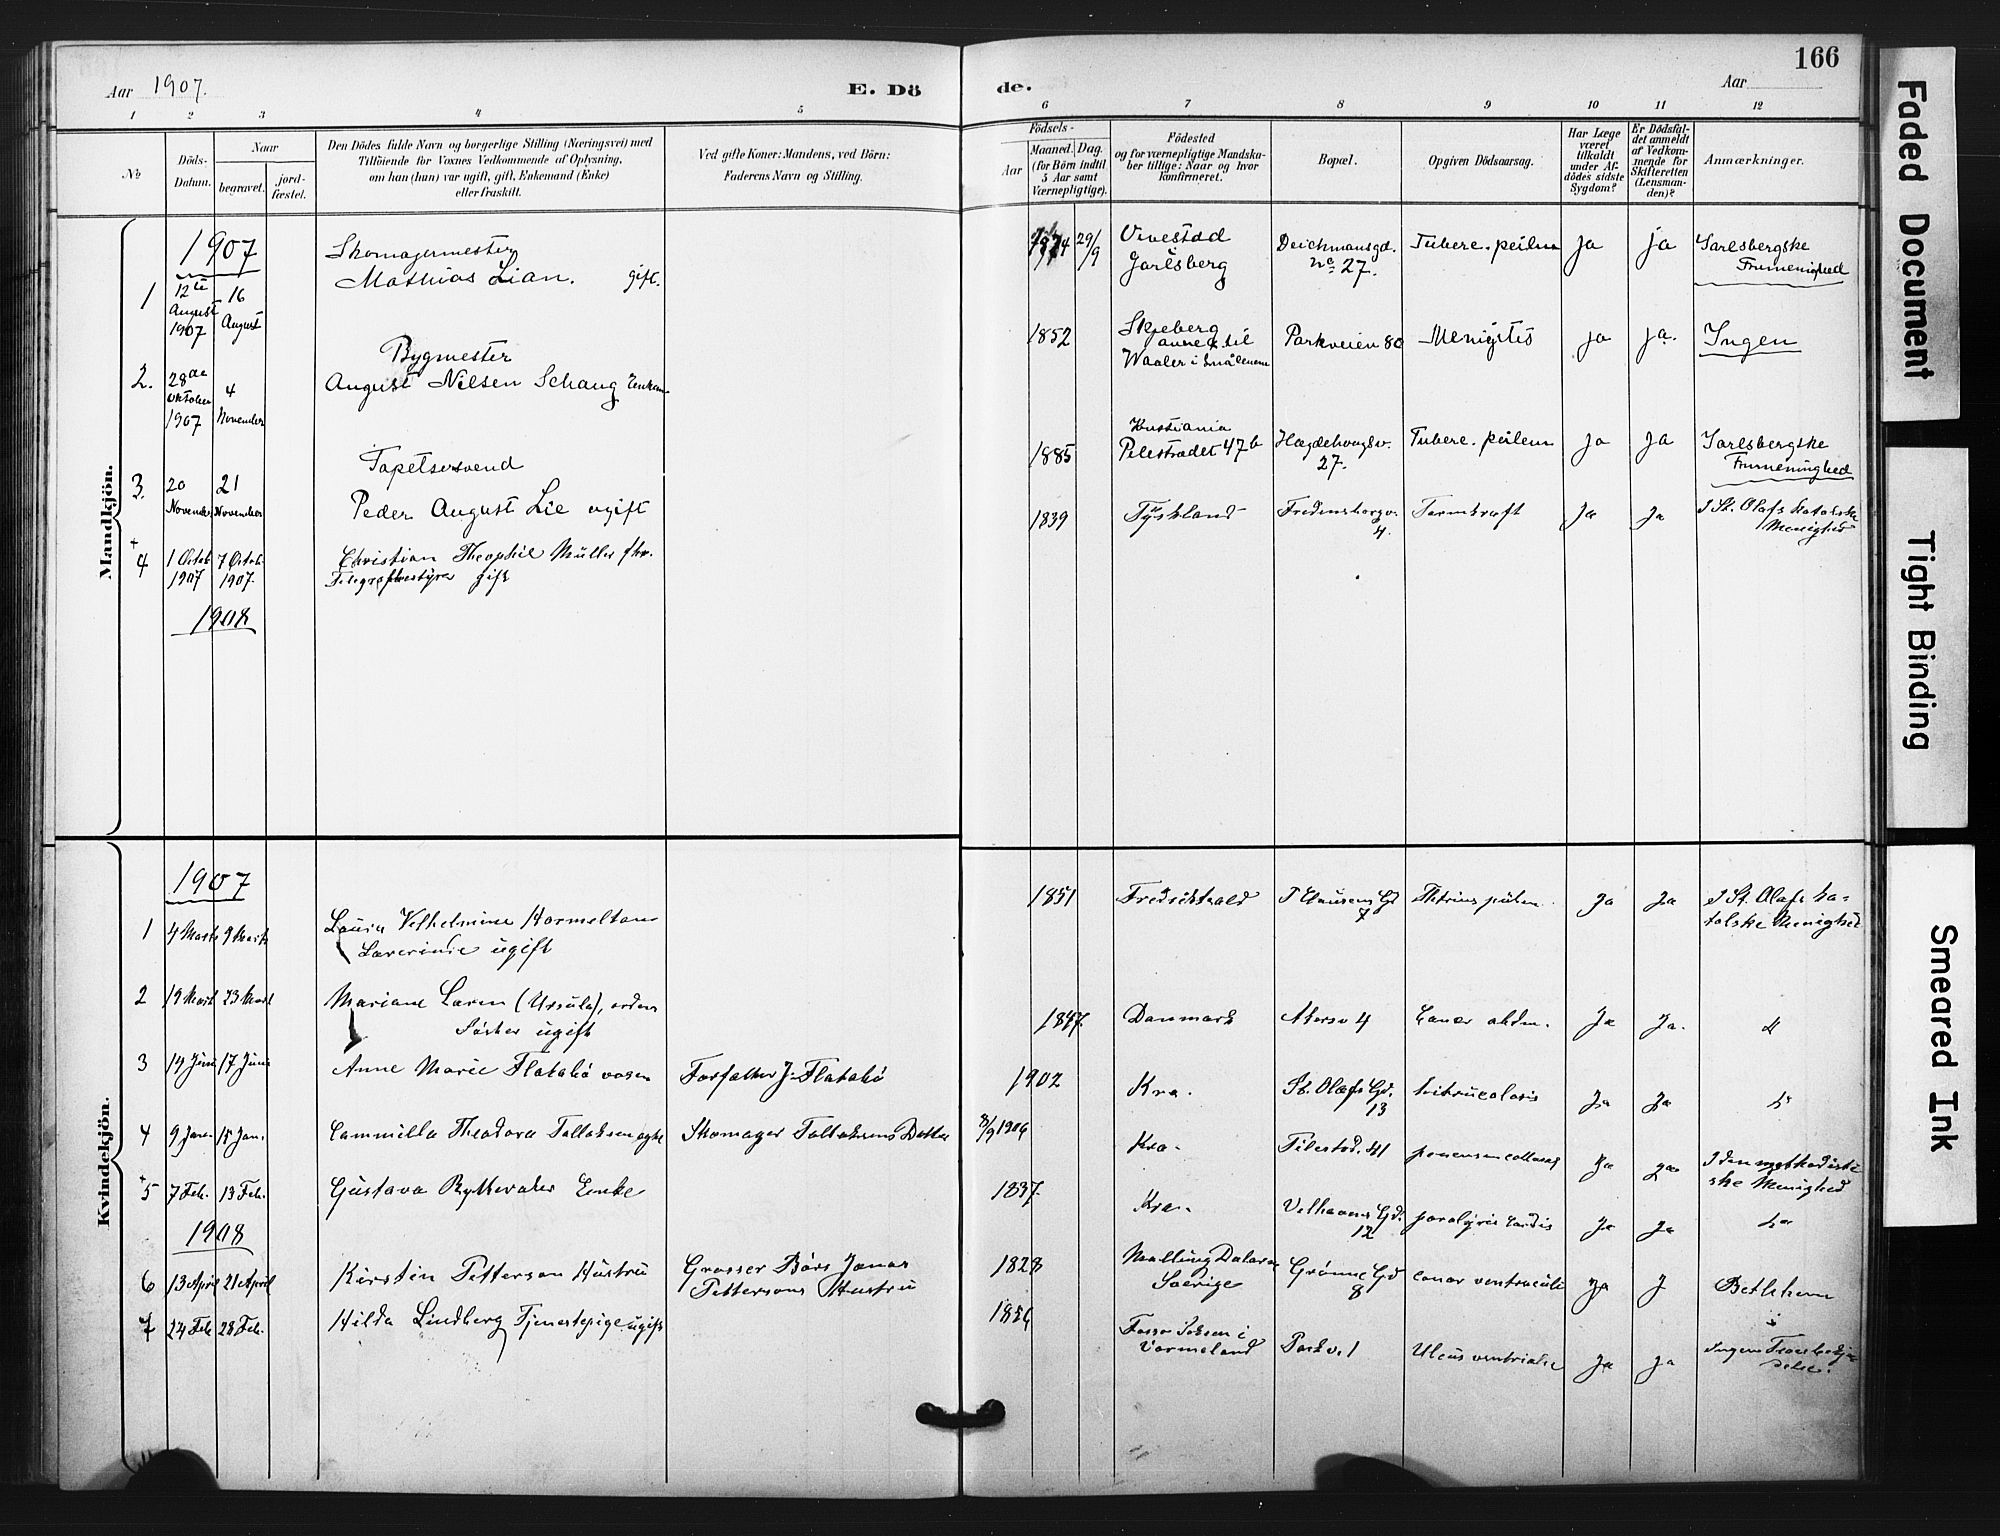 166
Aar 1907.
E. Dö
de.
Aar
1 2 3 4 5 6 7 8 9 10 11 12
№
Döds-
Datum.
Naar
begravet.
jord-
fæstet.
Den Dödes fulde Navn og borgerlige Stilling (Næringsvei) med
Tilföiende for Voxnes Vedkommende af Oplysning,
om han (hun) var ugift, gift, Enkemand (Enke)
eller fraskilt.
Ved gifte Koner: Mandens, ved Börn:
Faderens Navn og Stilling.
Födsels-
Aar
Maaned. Dag.
(for Börn indtil
5 Aar samt
Værnepligtige).
Födested
og for værnepligtige Mandska-
ber tillige: Naar og hvor
konfirmeret.
Bopæl.
Opgiven Dödsaarsag.
Har Læge
været
tilkaldt
under Af-
dödes sidste
Sygdom?
Er Dödsfal-
det anmeldt
af Vedkom-
mende for
Skifteretten
(Lensman-
den)?
Anmærkninger.
Mandkjön.
1907
1
12te
August
1907
16
August
Skomagermester
Mathias Lian. gift.
29/9
Jarlsberg
Deichmansgd.
no 27.
Ja
ja
Frimenighed
2.
28de
Oktober
1907
4
November
Bygmester
August Nilsen Schaug
1852
Skjeberg
annex til
Waaler i Smålenene
Parkveien 80
ja
ja.
Ingen
3.
20
November
21
November
Tapetsersvend
Peder August Lie ugift
1885
Kristiania
Pilestrædet 47b
27.
Ja
Ja
Frimenighed
+
4
1 Octob
1907
7 Octob.
1907.
Christian Theophil Müller fhv.
Telegrafbestyrer gift
1839
Tyskland
Fredensborgv.
4.
Tarmkræft
Ja
Ja
I St. Olafs katolske
Menighed
1908
Kvindekjön.
1907
1
4 Marts
9 Marts
Lærerinde ugift
1851
Fredrikshald
7
Ja
Ja
I St. Olafs ka-
tolske Menighed
2
19 Mart
23 Mart
Mariane Laren (Ursula), ordens
Söster ugift
1847.
Danmark
Akersv 4
Ja
Ja.
3
14 Juni
17 Juni
Anne Marie Flatabö
Forfatter J. Flatabö
1902
Kra.
St. Olafs Gd.
13
Ja
Ja
4
9 Jan.
15 Jan.
Cammilla Theodora Tollaksen
Skomager Tollaksens Datter
8/9 1906
Kra.
Pilestræd. 41
Ja
Ja
I den methodisti
ske Menighed
+
5
7 Feb.
13 Feb.
Gustava Enke
1837.
Kra.
Velhavens Gd.
12
paralysis cordis
Ja
Ja
1908
6
13 April
21 April
Kirstin Petterson Hustru
Grosser Jonas
Pettersons Hustru
1828
Sverige
Grønne Gd
8
cancer ventriculi
Ja
J
Betlehem
7
24 Feb
28 Feb.
Hilda Lindberg Tjenestepige ugift
1856
Värmeland
Parkv. 1
Ulcus ventriculi
Ja
Ja
Faded Document
Tight Binding
Smeared Ink